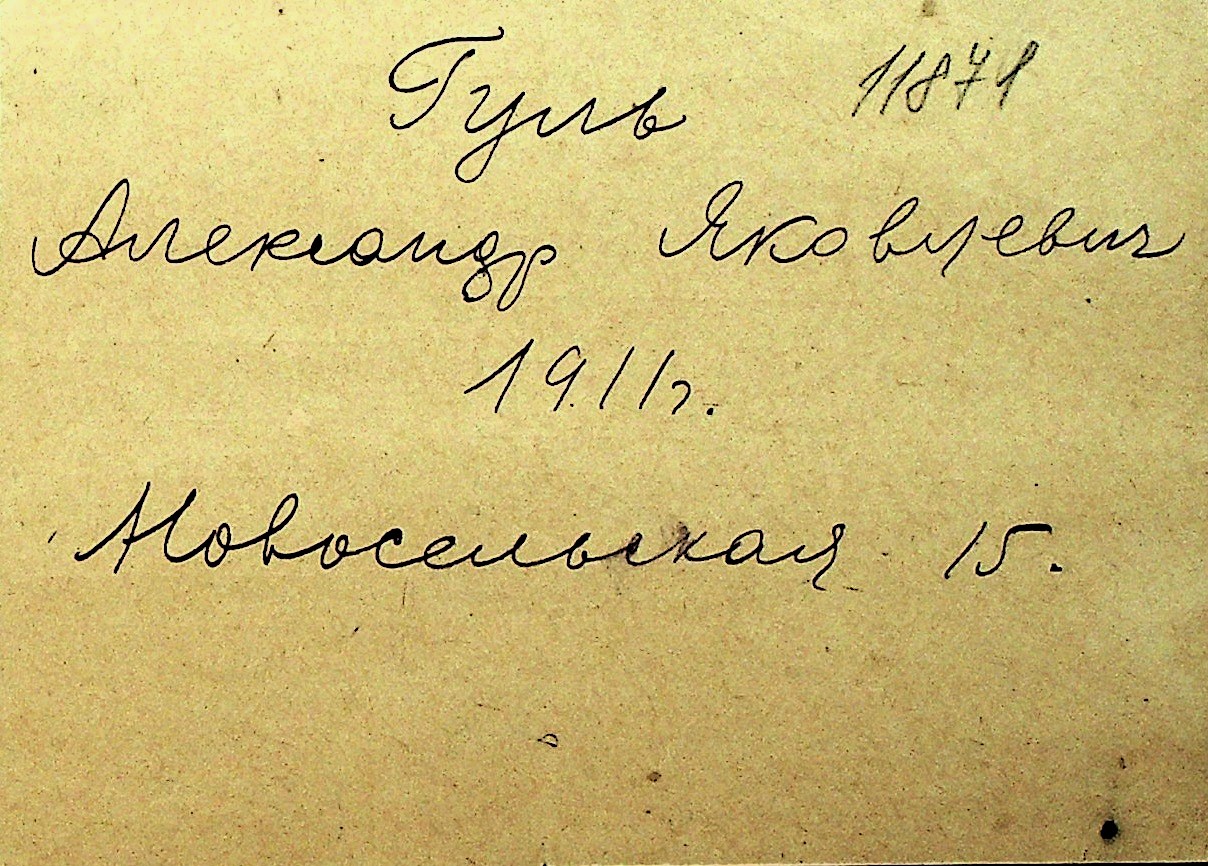 Гуль 11871
Александр Яковлевич
1911г.
Новосельская 15.